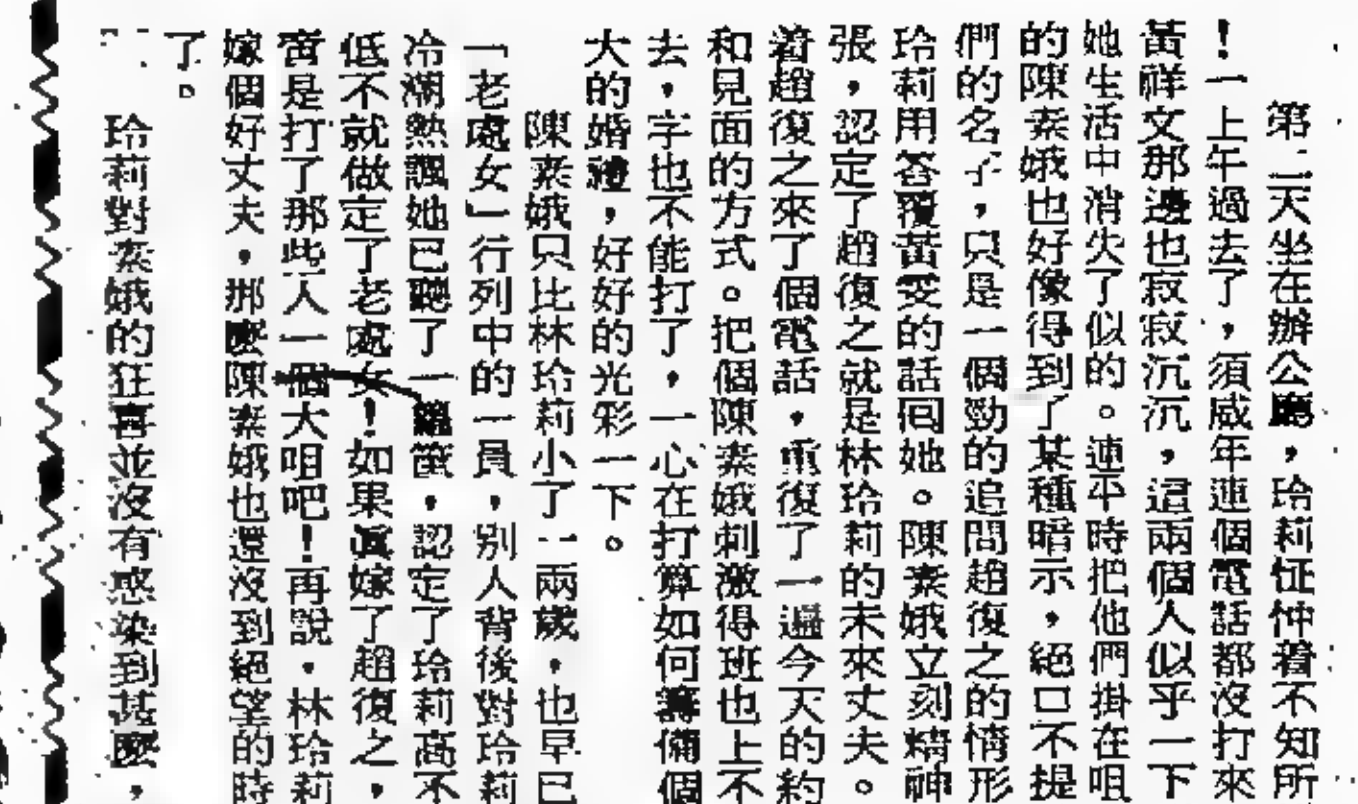 第二天坐在辦公廳，玲莉怔忡着不知所
！一上午過去了，須威年連個電話都沒打來
黃祥文那邊也寂寂沉沉，這兩個人似乎一下
她生活中消失了似的。連平時把他們掛在咀
的陳素娥也好像得到了某種暗示，絕口不提
們的名子，只是一個勁的追問趙復之的情形
玲莉用答覆黃雯的話回她。陳素娥立刻精神
張，認定了趙復之就是林玲莉的未來丈夫。
着趙復之來了個電話，重復了一遍今天的約
和見面的方式。把個陳素娥刺激得班也上不
去，字也不能打了，一心在打算如何籌備個
大的婚禮，好好的光彩一下。
陳素娥只比林玲莉小了一兩歲，也早已
「老處女」行列中的一員，別人背後對玲莉
冷潮熱諷她已聽了一籮筐，認定了玲莉高不
低不就做定了老處女！如果眞嫁了趙復之，
是打了那些人一個大咀吧！再說，林玲莉
嫁個好丈夫，那麼陳素娥也還沒到絕望的時
了。
玲莉對素娥的狂喜並沒有感染到甚麼，